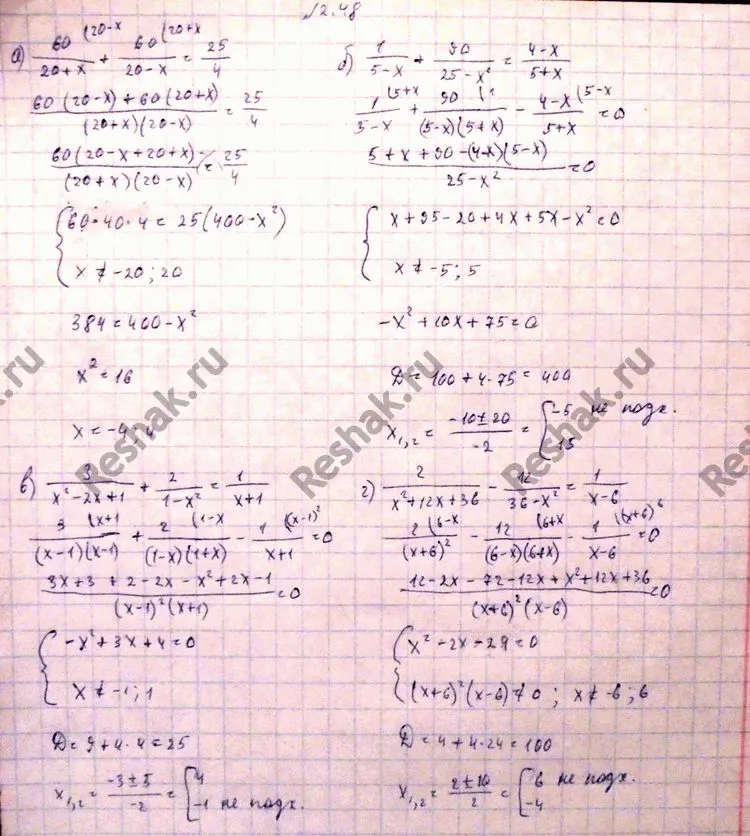 №2.48
а) 60(20-x / 20+x + 60(20+x / 20-x = 25/4
60(20-x)+60(20+x) / (20+x)(20-x) = 25/4
60(20-x+20+x) / (20+x)(20-x) = 25/4
{ 60·40·4 = 25(400-x²)
x ≠ -20; 20
384 = 400-x²
x² = 16
x = -4; 4
б) 1/5-x + 90/25-x² = 4-x/5+x
1(5+x / 5-x + 90(1 / (5-x)(5+x) - 4-x(5-x / 5+x = 0
5+x+90-(4-x)(5-x) / 25-x² = 0
{ x+95-20+4x+5x-x² = 0
x ≠ -5; 5
-x²+10x+75 = 0
D = 100+4·75 = 400
x₁,₂ = -10±20 / -2 = [ -5 не подх.
15
в) 3/x²-2x+1 + 2/1-x² = 1/x+1
3(x+1 / (x-1)(x-1) + 2(1-x / (1-x)(1+x) - 1((x-1)² / x+1 = 0
3x+3+2-2x-x²+2x-1 / (x-1)²(x+1) = 0
{ -x²+3x+4 = 0
x ≠ -1; 1
D = 9+4·4 = 25
x₁,₂ = -3±5 / -2 = [ 4
-1 не подх.
г) 2/x²+12x+36 - 12/36-x² = 1/x-6
2(6-x / (x+6)² - 12(6+x / (6-x)(6+x) - 1((x+6)⁶ / x-6 = 0
12-2x-72-12x+x²+12x+36 / (x+6)²(x-6) = 0
{ x²-2x-24 = 0
(x+6)²(x-6) ≠ 0; x ≠ -6; 6
D = 4+4·24 = 100
x₁,₂ = 2±10 / 2 = [ 6 не подх.
-4
Reshak.ru
Reshak.ru
Reshak.ru
Reshak.ru